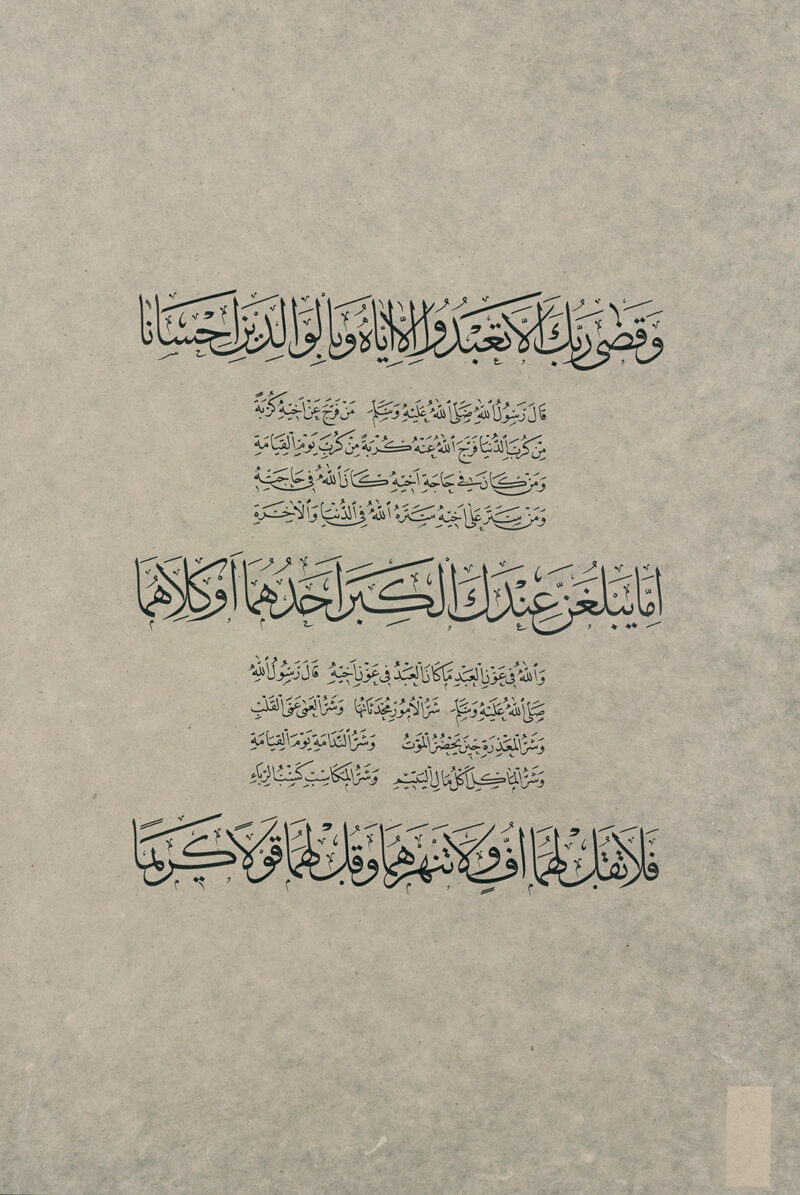 وَقَضٰى رَبُّكَ اَلَّا تَعْبُدُوا اِلَّا اِيَّاهُ وَبِالْوَالِدَيْنِ اِحْسَانًا
قَالَ رَسُولُ اللهِ صَلَّى اللهُ عَلَيْهِ وَسَلَّمَ مَنْ فَرَّجَ عَنْ اَخِيهِ كُرْبَةً
مِنْ كُرَبِ الدُّنْيَا فَرَّجَ اللهُ عَنْهُ كُرْبَةً مِنْ كُرَبِ يَوْمِ الْقِيَامَةِ
وَمَنْ كَانَ فِي حَاجَةِ اَخِيهِ كَانَ اللهُ فِي حَاجَتِهِ
وَمَنْ سَتَرَ عَلٰى اَخِيهِ سَتَرَهُ اللهُ فِي الدُّنْيَا وَالْاٰخِرَةِ
اِمَّا يَبْلُغَنَّ عِنْدَكَ الْكِبَرَ اَحَدُهُمَا اَوْ كِلَاهُمَا
وَاللهُ فِي عَوْنِ الْعَبْدِ مَا كَانَ الْعَبْدُ فِي عَوْنِ اَخِيهِ قَالَ رَسُولُ اللهِ
صَلَّى اللهُ عَلَيْهِ وَسَلَّمَ شَرُّ الْاُمُورِ مُحْدَثَاتُهَا وَشَرُّ الْعَمٰى عَمَى الْقَلْبِ
وَشَرُّ الْمَعْذِرَةِ حِينَ يَحْضُرُ الْمَوْتُ وَشَرُّ النَّدَامَةِ يَوْمَ الْقِيَامَةِ
وَشَرُّ الْمَأْكَلِ اَكْلُ مَالِ الْيَتِيمِ وَشَرُّ الْمَكَاسِبِ كَسْبُ الرِّبَاءِ
فَلَا تَقُلْ لَهُمَا اُفٍّ وَلَا تَنْهَرْهُمَا وَقُلْ لَهُمَا قَوْلًا كَرِيمًا